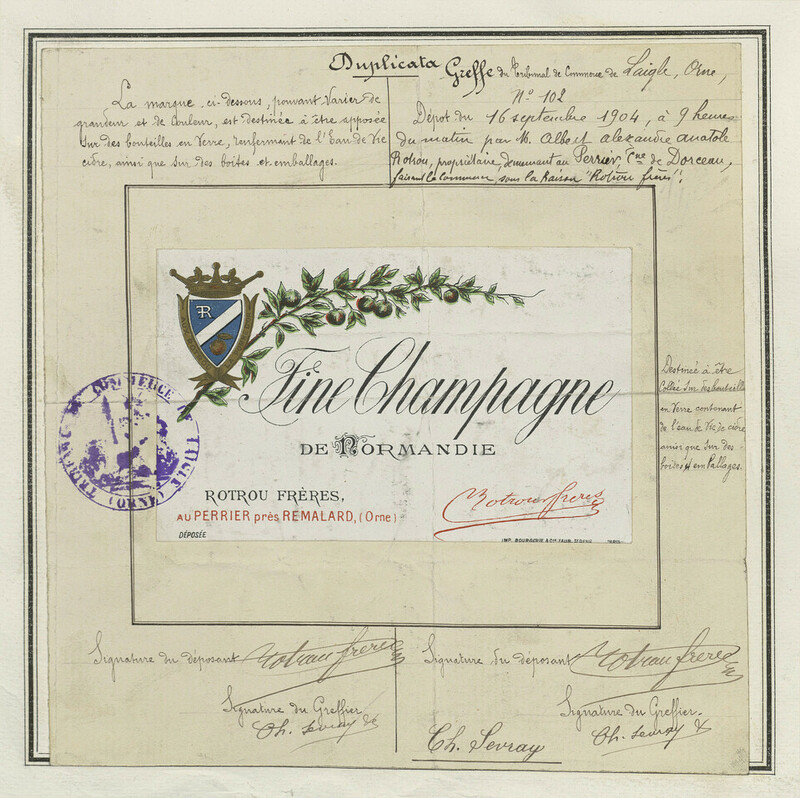 Duplicata
La marque ci-dessous, pouvant varier de
grandeur et de couleur, est destinée à être apposée
sur des bouteilles en verre, renfermant de l'Eau de Vie
cidre, ainsi que sur des boites et emballages.
Greffe du Tribunal de Commerce de Laigle, Orne,
N° 102
Dépôt du 16 septembre 1904, à 9 heures
du matin par M. Albert alexandre anatole
Rotrou, propriétaire, demeurant au Perrier, Cne de Dorceau,
faisant le commerce sous la Raison "Rotrou frères".
FR
Fine Champagne
DE NORMANDIE
ROTROU FRÈRES,
AU PERRIER près REMALARD, (Orne)
DÉPOSÉE
Rotrou freres
IMP. BOURGERIE & Cie FAUB. St DENIS PARIS
TRIBUNAL DE COMMERCE DE LAIGLE (ORNE)
Destinée à être
Collée sur des bouteilles
en verre contenant
de l'eau de Vie de cidre
ainsi que sur des
boites et emballages.
Signature du déposant Rotrou freres
Signature du Greffier
Ch. Sevray
Signature du déposant Rotrou freres
Signature du Greffier
Ch. Sevray
Ch. Sevray